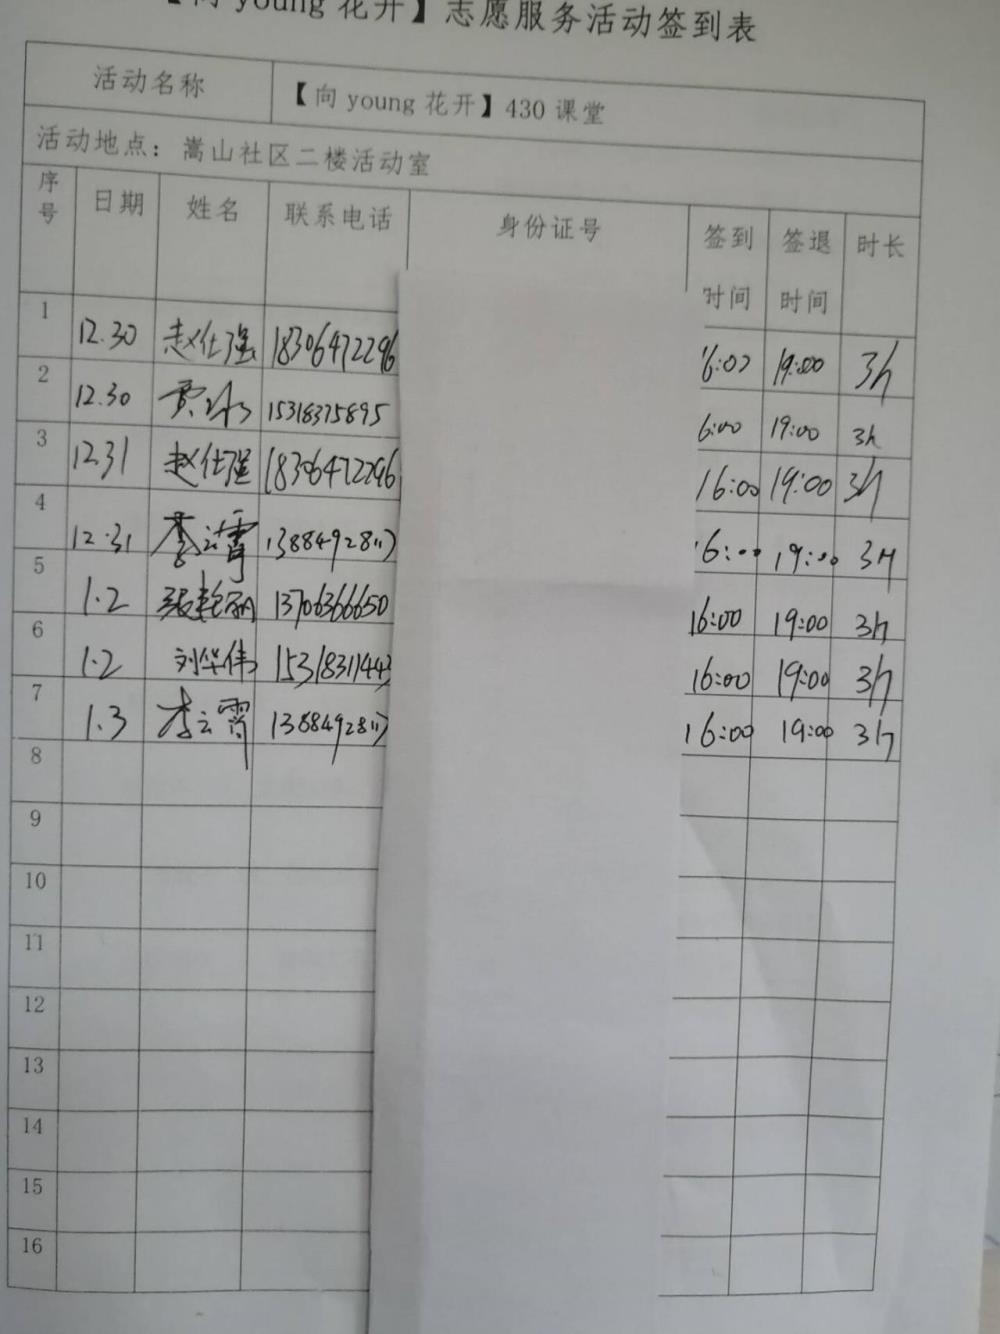 【向 young 花开】志愿服务活动签到表
活动名称 【向 young 花开】430 课堂
活动地点：嵩山社区二楼活动室
序号 日期 姓名 联系电话 身份证号 签到时间 签退时间 时长
1 12.30 赵仕强 18306472296 16:00 19:00 3h
2 12.30 贾冰 15318375895 6:00 19:00 3h
3 12.31 赵仕强 18306472296 16:00 19:00 3h
4 12.31 李云霄 13884928117 16:00 19:00 3H
5 1.2 张艳丽 13706366650 16:00 19:00 3h
6 1.2 刘华伟 15318311443 16:00 19:00 3h
7 1.3 李云霄 13884928117 16:00 19:00 3h
8
9
10
11
12
13
14
15
16